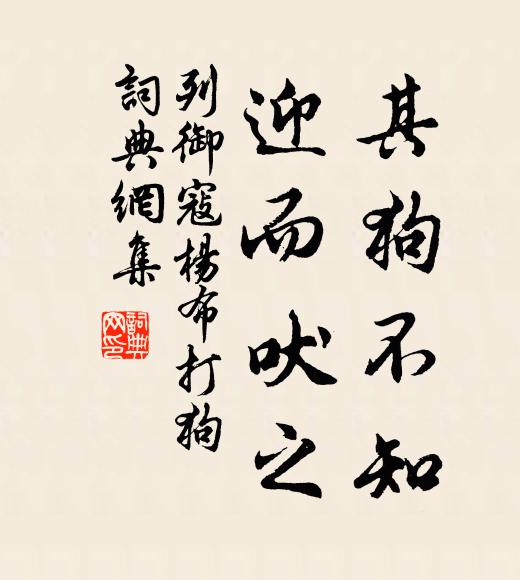 其狗不知
迎而吠之
列御寇楊布打狗
詞典網集
詞典網印